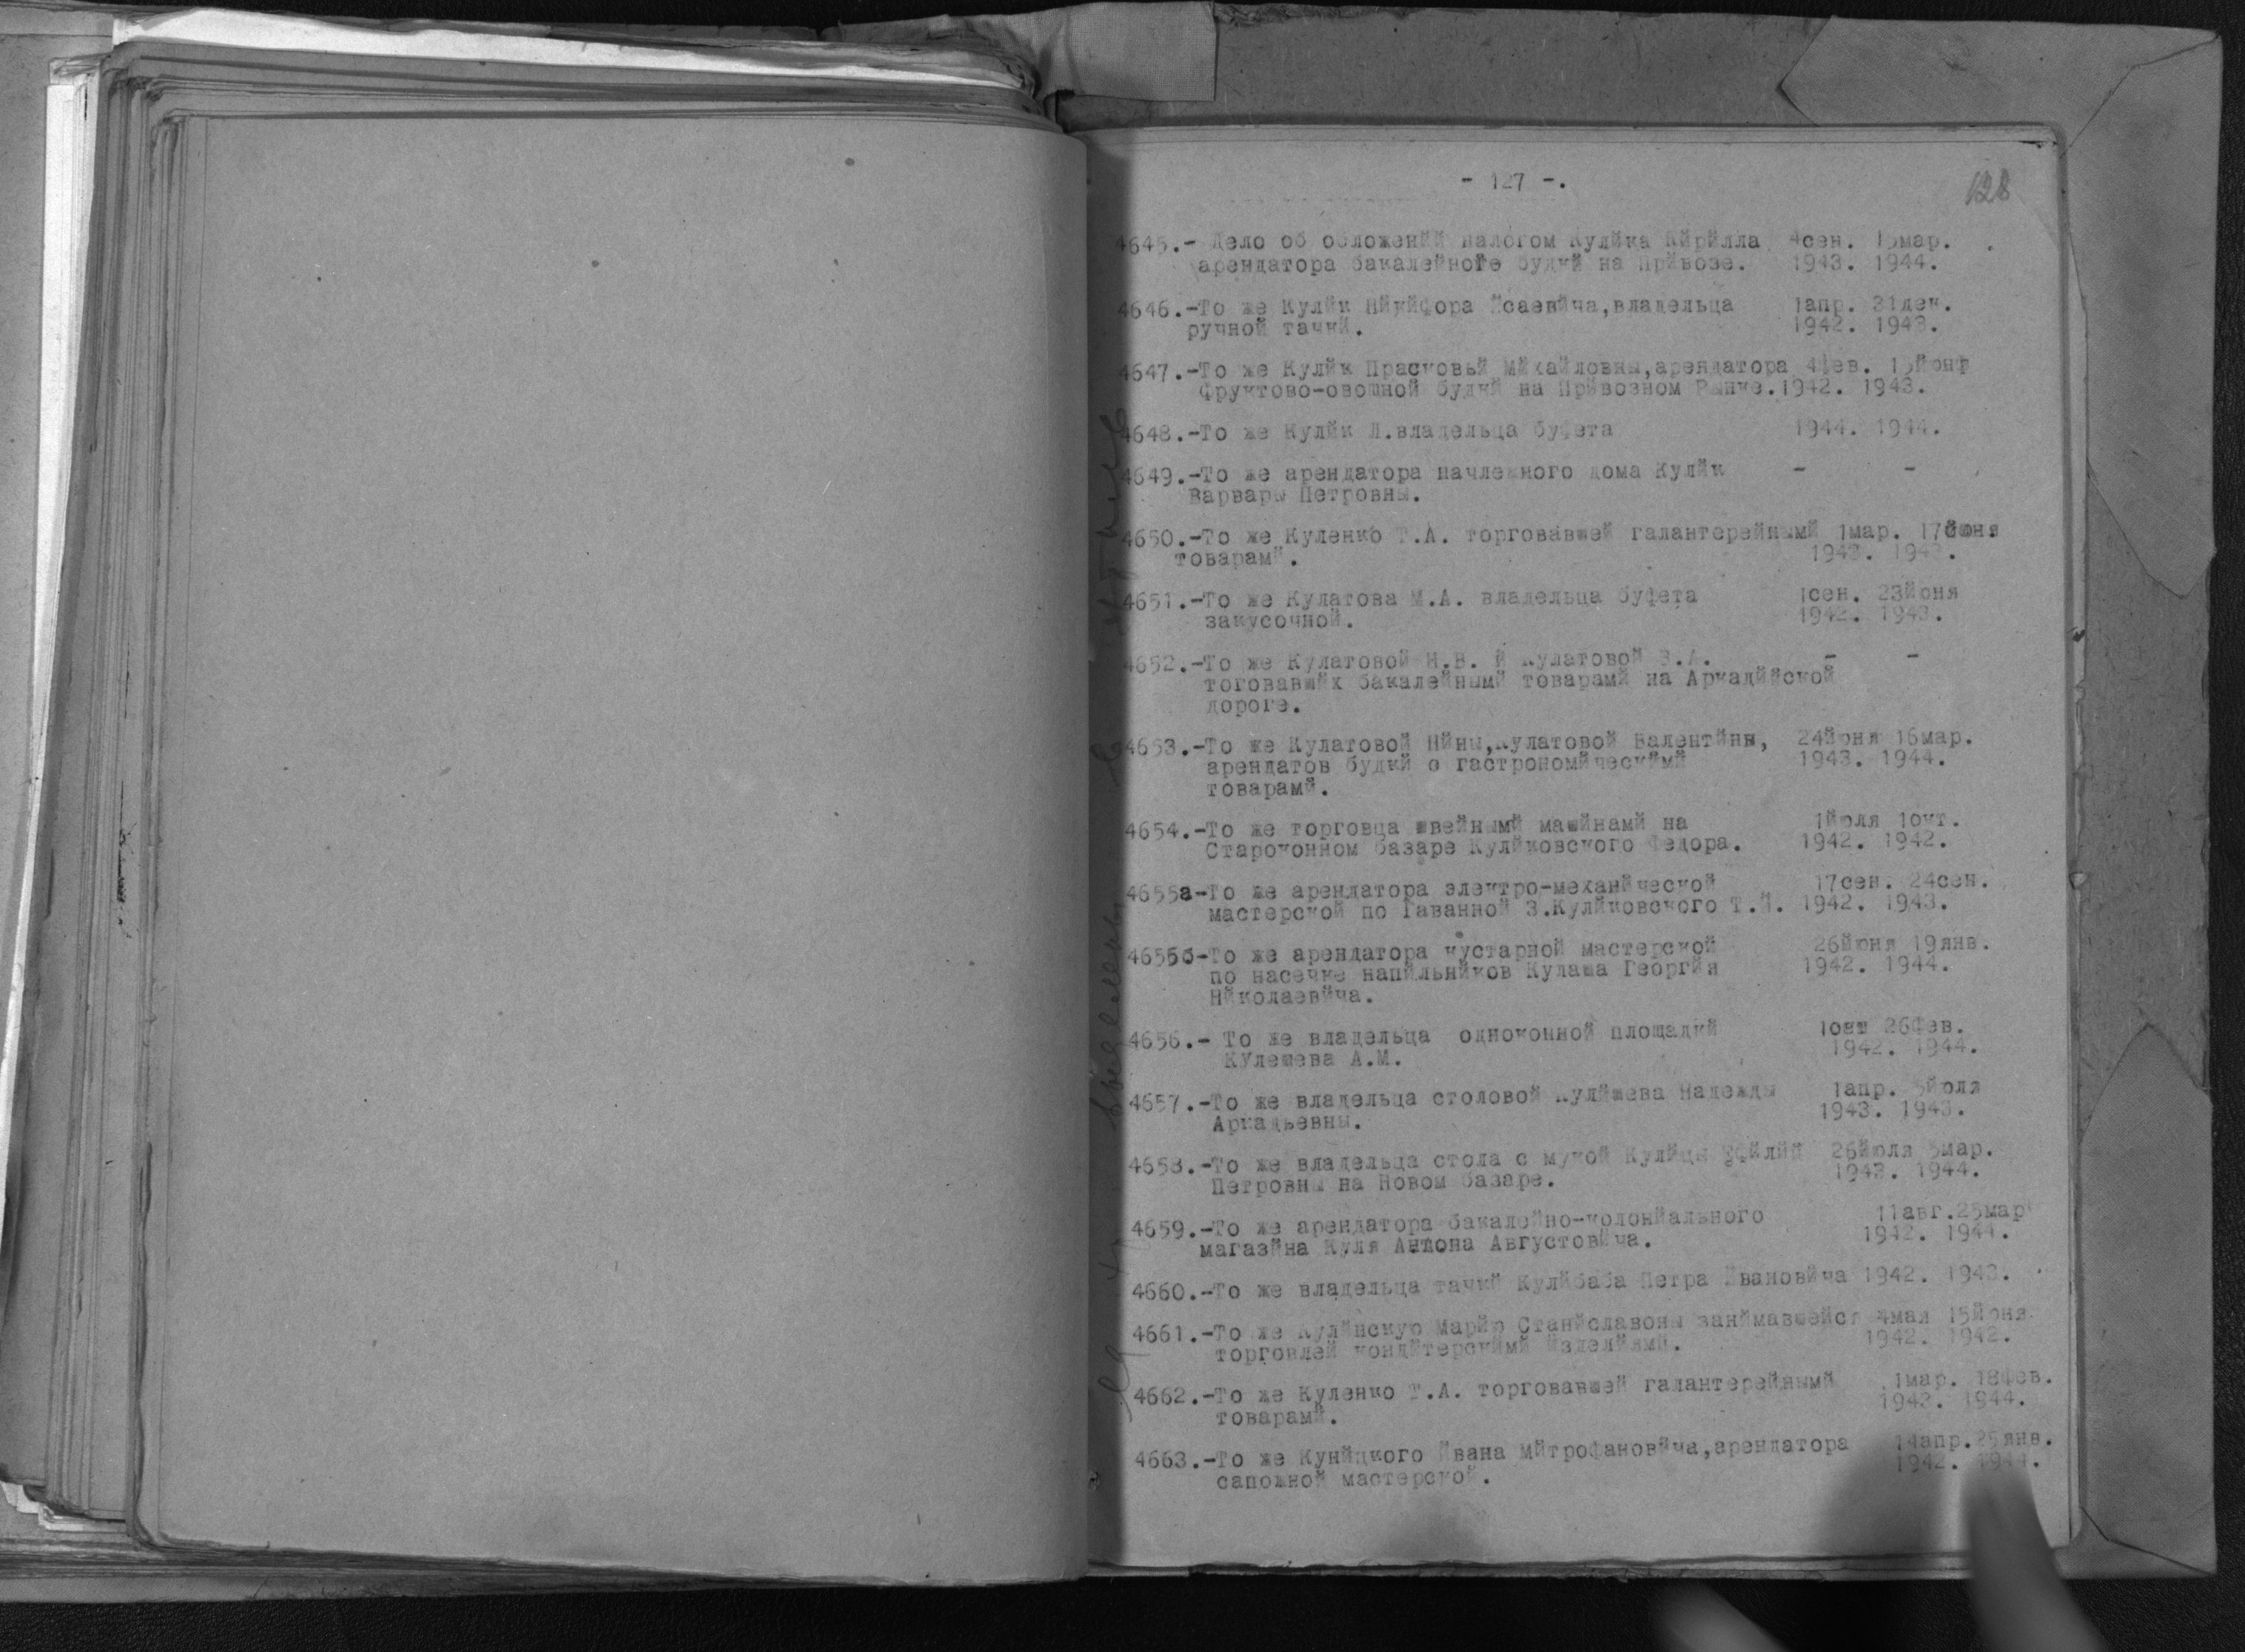 - 127 -.
128
4645.- Дело об обложений налогом Кулйка Кйрйлла 4сен. 15мар.
арендатора бакалейноге будкй на Прйвозе. 1943. 1944.
4646.-То же Кулйк Нйкйфора Йсаевйча,владельца 1апр. 31дек.
ручной тачкй. 1942. 1943.
4647.-То же Кулйк Прасковьй Мйхайловны,арендатора 4фев. 15йюня
Фруктово-овошной будкй на Прйвозном Рынке.1942. 1943.
4648.-То же Кулйк Л.владельца буфета 1944. 1944.
4649.-То же арендатора начлежного дома Кулйк - -
Варвары Петровны.
4650.-То же Куленко Т.А. торговавшей галантерейнымй 1мар. 17йюня
товарамй. 1943. 1943.
4651.-То же Кулатова М.А. владельца буфета 1сен. 23йюня
закусочной. 1942. 1943.
4652.-То же Кулатовой Н.В. й Кулатовой З.А. - -
тоговавшйх бакалейнымй товарамй на Аркадййской
дороге.
4653.-То же Кулатовой Нйны,Кулатовой Валентйны, 24йюня 16мар.
арендатов будкй с гастрономйческймй 1943. 1944.
товарамй.
4654.-То же торговца швейнымй машйнамй на 1йюля 1окт.
Староконном базаре Кулйковского Федора. 1942. 1942.
4655а-То же арендатора электро-механйческой 17сен. 24сен.
мастерской по Гаванной 3.Кулйковского Т.Й. 1942. 1943.
4655б-То же арендатора кустарной мастерской 26йюня 19янв.
по насечке напйльнйков Кулаша Георгйя 1942. 1944.
Нйколаевйча.
4656.- То же владельца одноконной площадкй 1окт 26фев.
КУлешева А.М. 1942. 1944.
4657.-То же владельца столовой Кулйшева Надежды 1апр. 5йюля
Аркадьевны. 1943. 1943.
4658.-То же владельца стола с мукой Кулйцы 26йюля 5мар.
Петровны на Новом базаре. 1943. 1944.
4659.-То же арендатора бакалейно-колонйального 11авг.25мар
магазйна Куля Антона Августовйча. 1942. 1944.
4660.-То же владельца тачкй Кулйбаба Петра Йвановйча 1942. 1943.
4661.-То же Кулйнскую Марйю Станйславоны занймавшейся 4мая 15йюня
торговлей кондйтерскймй йзделйямй. 1942. 1942.
4662.-То же Куленко Т.А. торговавшей галантерейнымй 1мар. 18фев.
товарамй. 1943. 1944.
4663.-То же Кунйцкого Йвана Мйтрофановйча,арендатора 14апр.25янв.
сапожной мастерской. 1942. 1944.